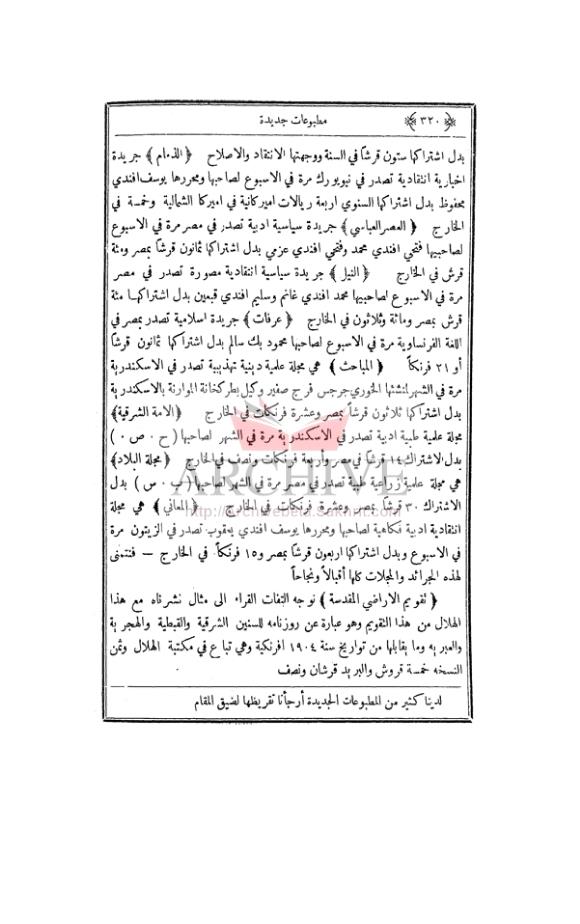 ﴿ ٣٢٠ ﴾ مطبوعات جديدة
بدل اشتراكها ستون قرشاً في السنة ووجهتها الانتقاد والاصلاح ﴿ الذمام ﴾ جريدة
اخبارية انتقادية تصدر في نيويورك مرة في الاسبوع لصاحبها ومحررها يوسف افندي
محفوظ بدل اشتراكها السنوي اربعة ريالات اميركانية في اميركا الشمالية وخمسة في
الخارج ﴿ العصر العباسي ﴾ جريدة سياسية ادبية تصدر في مصر مرة في الاسبوع
لصاحبيها فتحي افندي محمد وفتحي افندي عزمي بدل اشتراكها ثمانون قرشاً بمصر ومئة
قرش في الخارج ﴿ النيل ﴾ جريدة سياسية انتقادية مصورة تصدر في مصر
مرة في الاسبوع لصاحبيها محمد افندي غانم وسليم افندي قبعين بدل اشتراكها مئة
قرش بمصر ومائة وثلاثون في الخارج ﴿ عرفات ﴾ جريدة اسلامية تصدر بمصر في
اللغة الفرنساوية مرة في الاسبوع لصاحبها محمود بك سالم بدل اشتراكها ثمانون قرشاً
أو ٢١ فرنكاً ﴿ المباحث ﴾ هي مجلة علمية دينية تهذيبية تصدر في الاسكندرية
مرة في الشهر لمنشئها الخوري جرجس فرج صفير وكيل بطركخانة الموارنة بالاسكندرية
بدل اشتراكها ثلاثون قرشاً بمصر وعشرة فرنكات في الخارج ﴿ الامة الشرقية ﴾
مجلة علمية طبية ادبية تصدر في الاسكندرية مرة في الشهر لصاحبها ( ح ٠ ص ٠ )
بدل الاشتراك ١٤ قرشاً في مصر وأربعة فرنكات ونصف في الخارج ﴿ مجلة البلاد ﴾
هي مجلة علمية زراعية طبية تصدر في مصر مرة في الشهر لصاحبها ( ب ٠ س ) بدل
الاشتراك ٣٠ قرشاً بمصر وعشرة فرنكات في الخارج ﴿ المعاني ﴾ هي مجلة
انتقادية ادبية فكاهية لصاحبها ومحررها يوسف افندي يعقوب تصدر في الزيتون مرة
في الاسبوع وبدل اشتراكها اربعون قرشاً بمصر و١٥ فرنكاً في الخارج — فنتمنى
لهذه الجرائد والمجلات كلها أقبالاً ونجاحاً
﴿ تقويم الاراضي المقدسة ﴾ نوجه التفات القراء الى مثال نشرناه مع هذا
الهلال من هذا التقويم وهو عبارة عن روزنامه للسنين الشرقية والقبطية والهجرية
والعبريه وما يقابلها من تواريخ سنة ١٩٠٤ افرنكية وهي تباع في مكتبة الهلال وثمن
النسخه خمسة قروش والبريد قرشان ونصف
لدينا كثير من المطبوعات الجديدة أرجأنا تقريظها لضيق المقام
ARCHIVE
http://archivebeta.Sakhrit.com